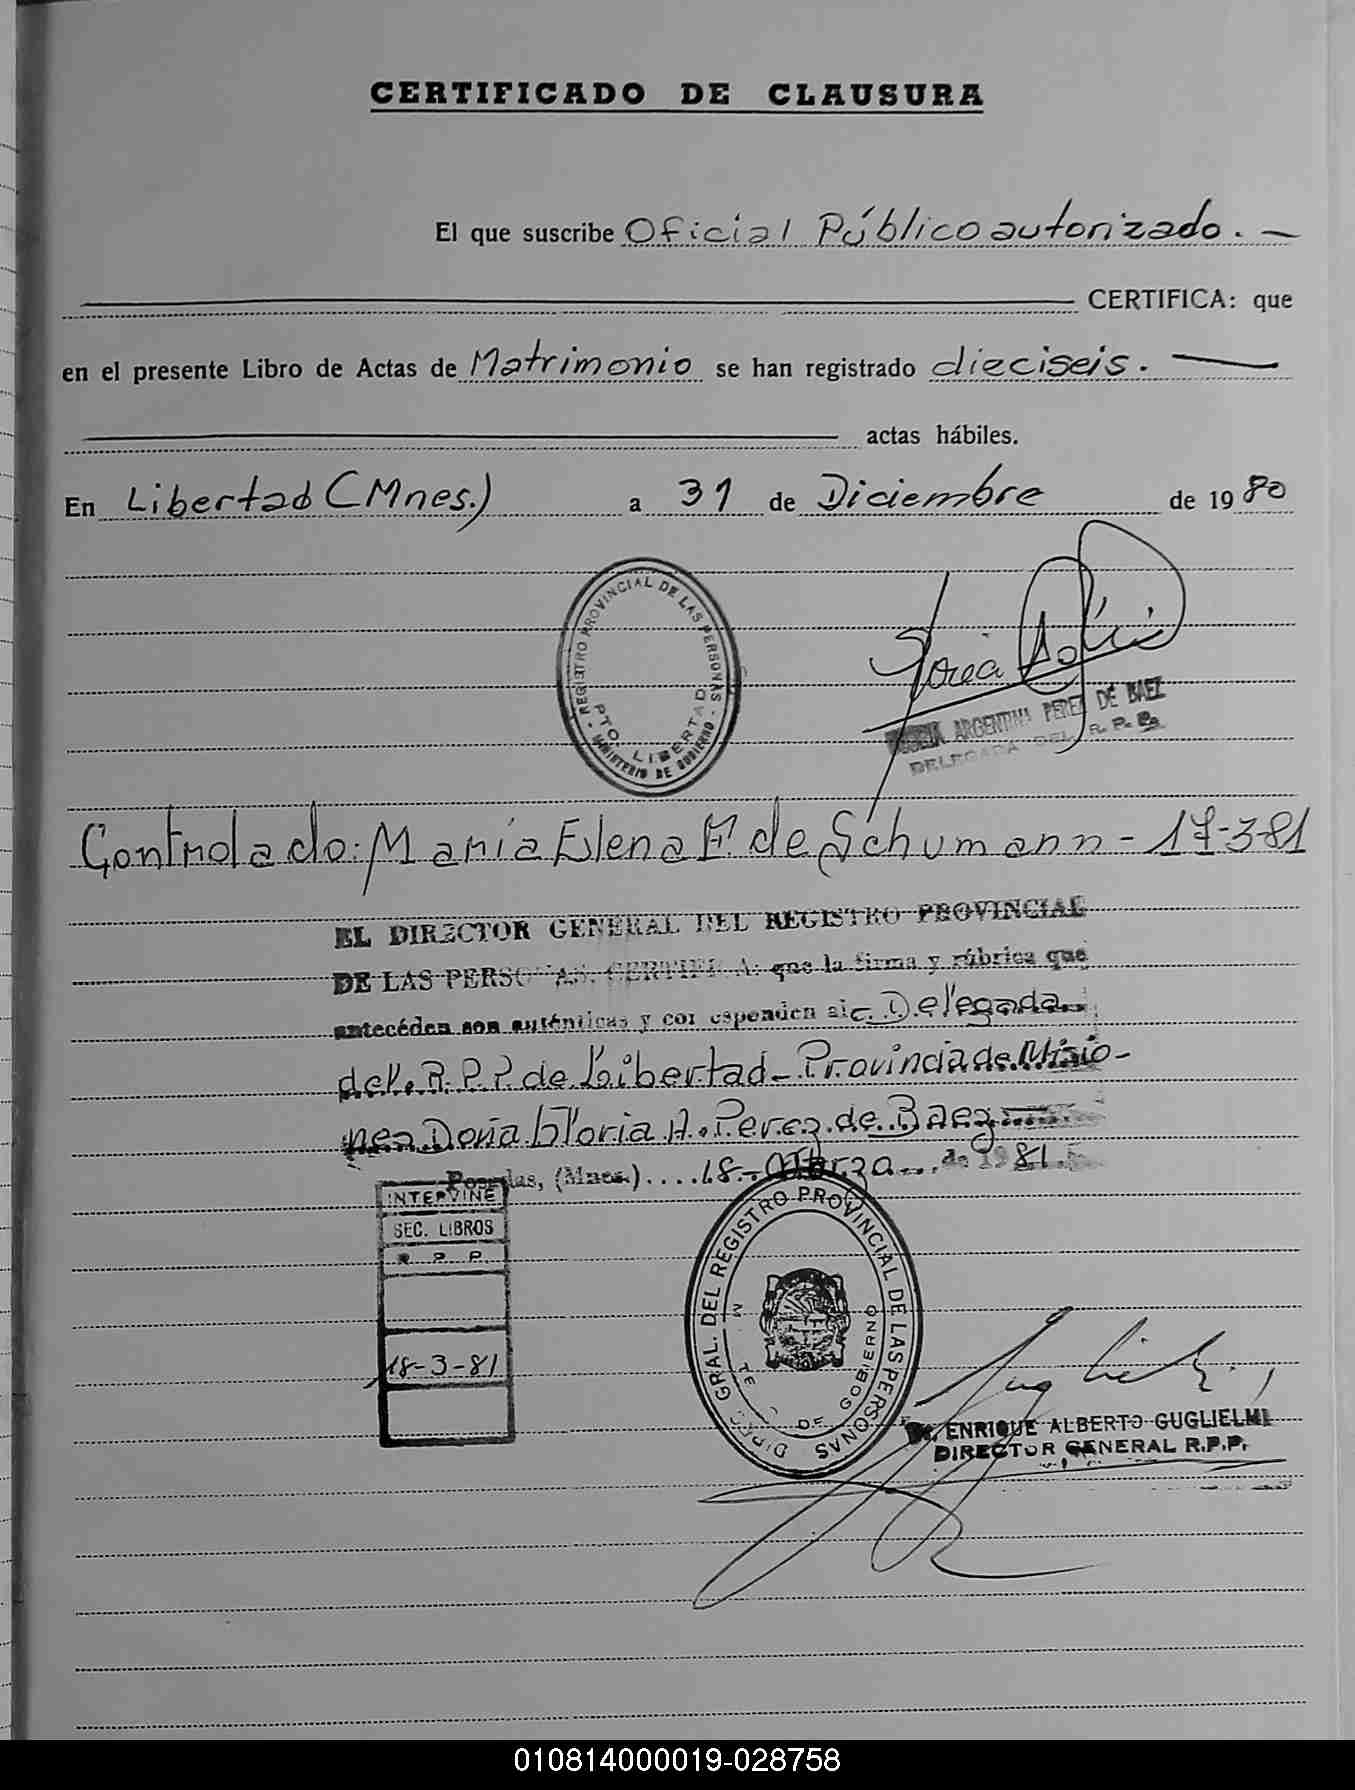 CERTIFICADO DE CLAUSURA
El que suscribe Oficial Público autorizado. —
CERTIFICA: que
en el presente Libro de Actas de Matrimonio se han registrado dieciseis. —
actas hábiles.
En Libertad (Mnes.) a 31 de Diciembre de 1980
REGISTRO PROVINCIAL DE LAS PERSONAS
PTO. LIBERTAD
MINISTERIO DE GOBIERNO
ARGENTINA PEREZ DE BAEZ
DELEGADA DEL R. P. P.
Controlado: María Elena F. de Schumann - 17-3-81
EL DIRECTOR GENERAL DEL REGISTRO PROVINCIAL
DE LAS PERSONAS, CERTIFICA: que la firma y rúbrica que
anteceden son auténticas y corresponden a la Delegada
del R.P.P. de Libertad - Provincia de Misio-
nes Doña Gloria A. Perez de Baez
Posadas, (Mnes.) .... 18 - Marzo ... de 1981
INTERVINE
SEC. LIBROS
R. P. P.
18-3-81
DIREC. GRAL. DEL REGISTRO PROVINCIAL DE LAS PERSONAS
DE GOBIERNO
Dr. ENRIQUE ALBERTO GUGLIELMI
DIRECTOR GENERAL R.P.P.
010814000019-028758